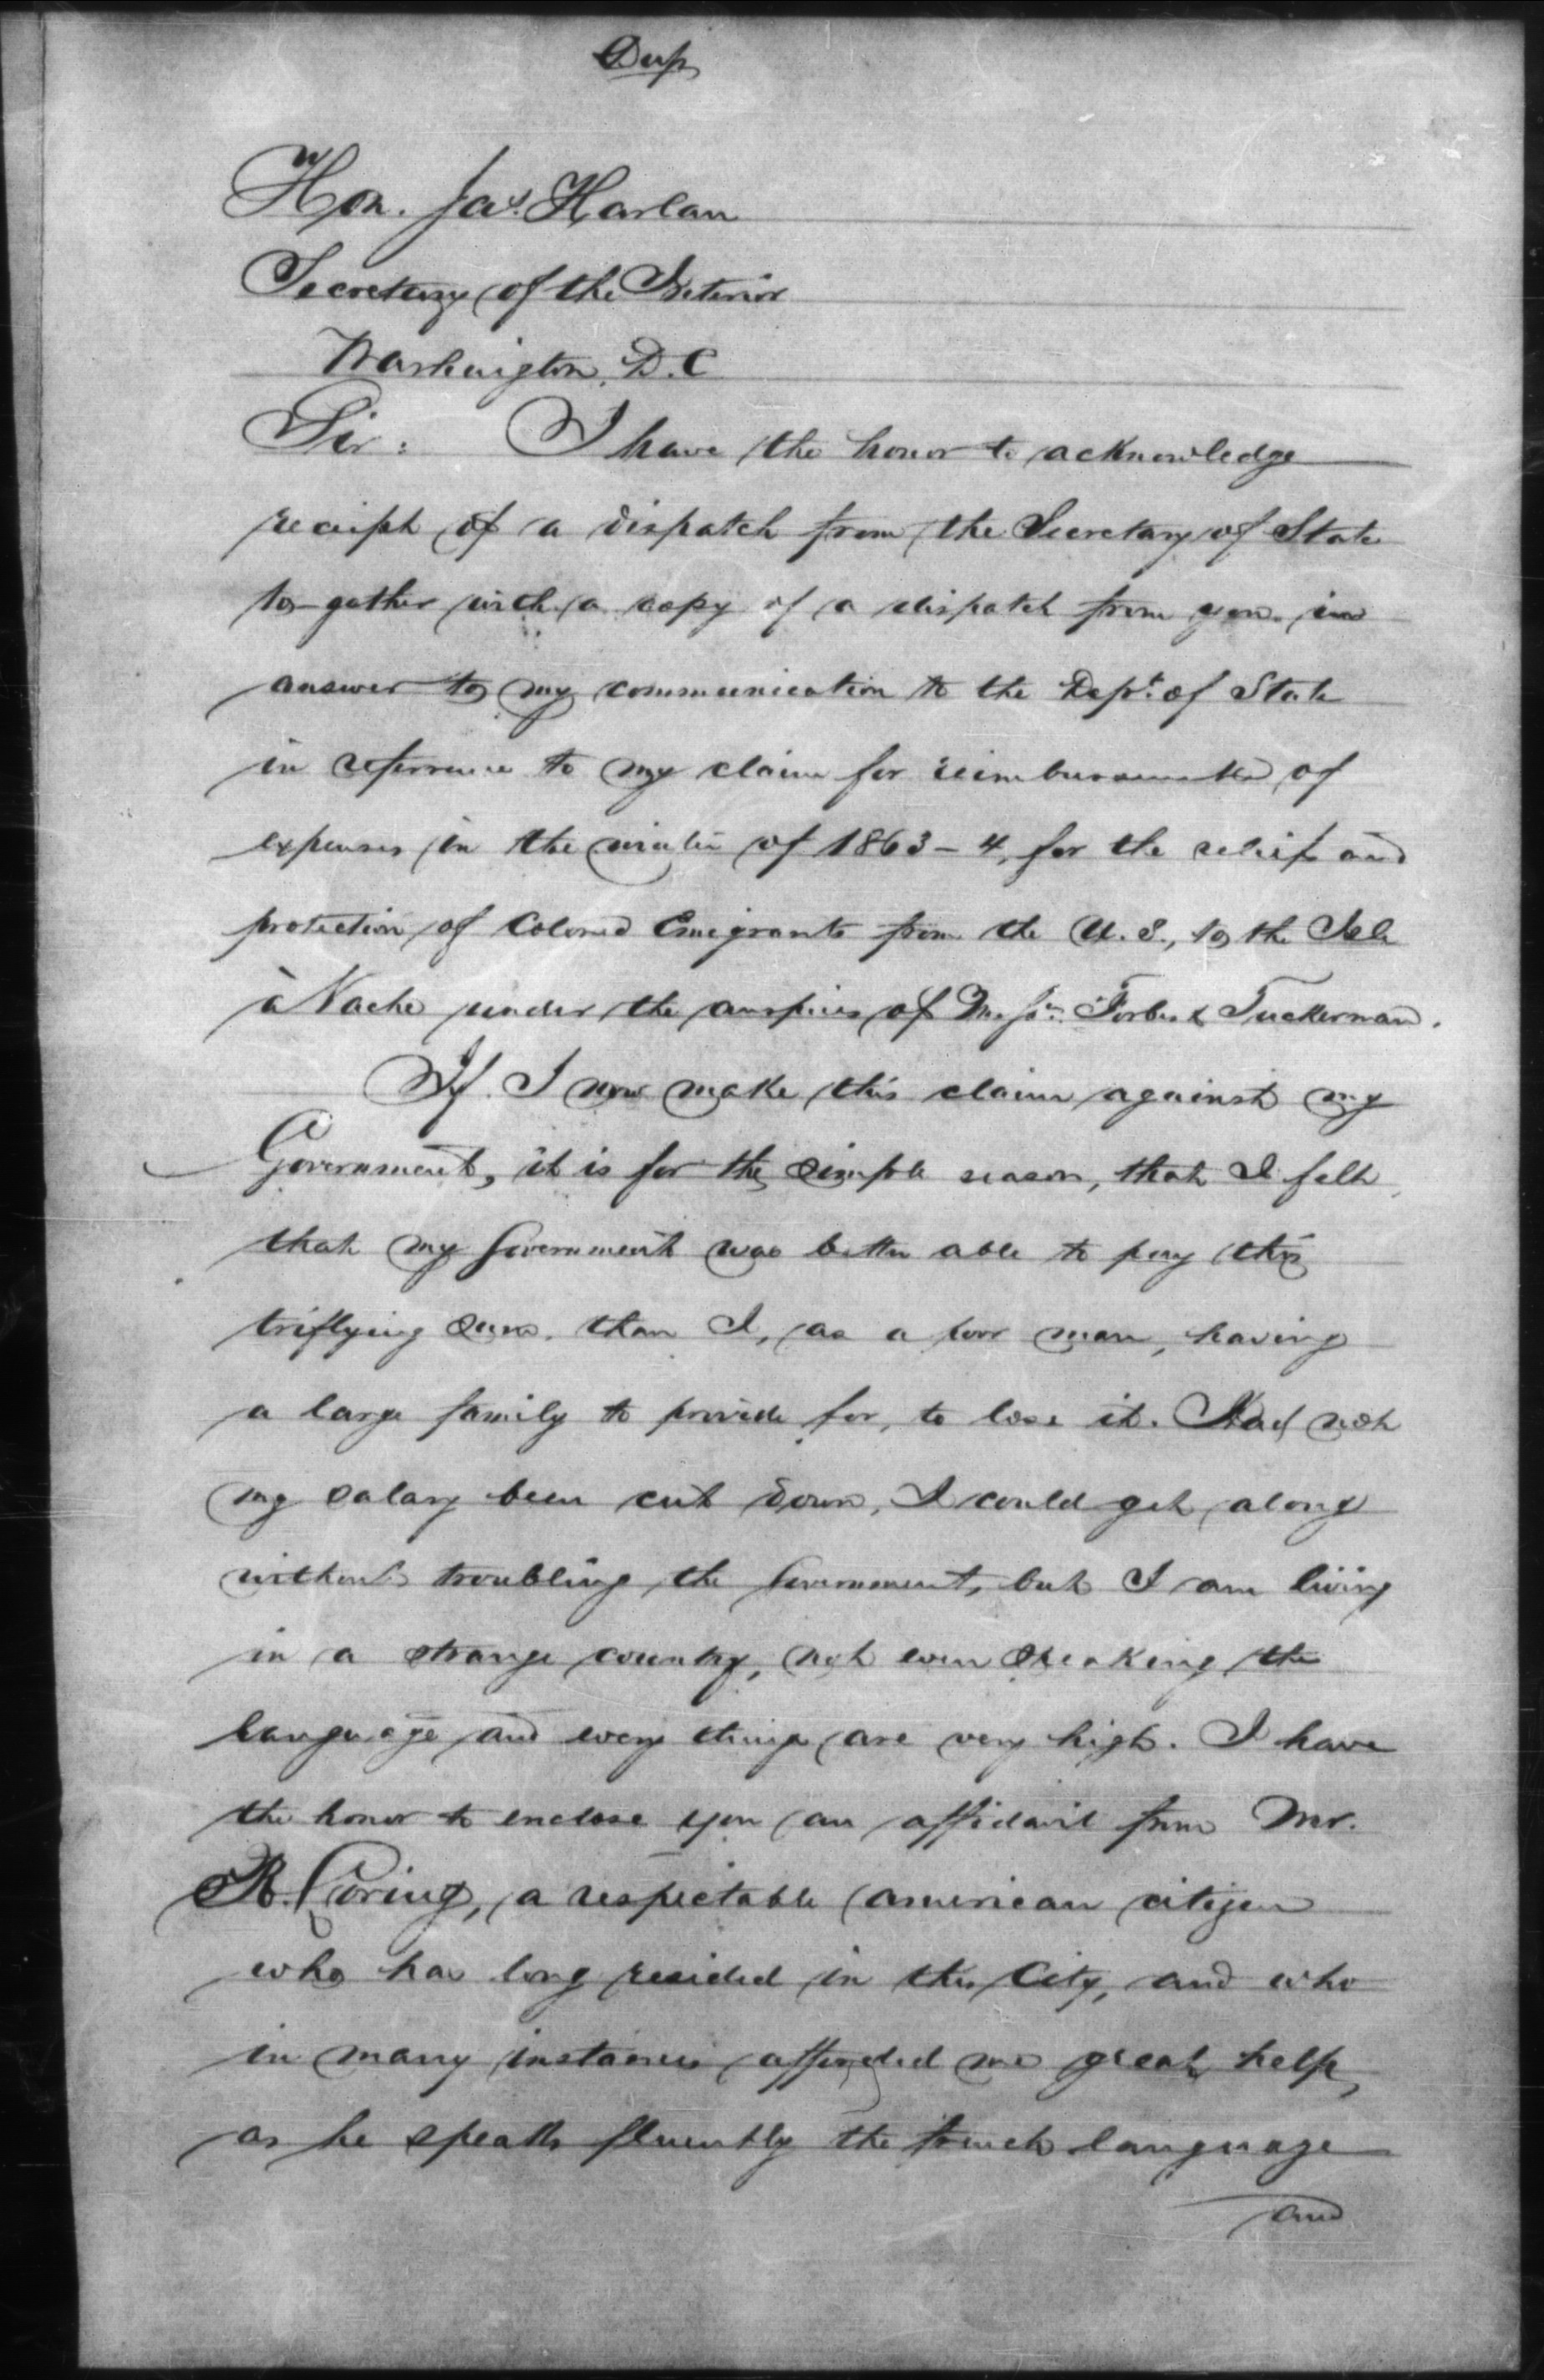 Dup
Hon. Jas. Harlan
Secretary of the Interior
Washington, D.C
Sir: I have the honor to acknowledge
receipt of a dispatch from the Secretary of State
to-gather with a copy of a dispatch from you in
answer to my communication to the Dept. of State
in referrence to my claim for reimbursement of
expenses in the winter of 1863-4, for the relief and
protection of Colored Emigrants from the U.S., to the Isle
à Vache under the auspices of Messrs. Forbes & Tuckerman.
If I now make this claim against my
Government, it is for the simple reason, that I felt
that my Government was better able to pay this
triflying sum. than I, as a poor man, having
a large family to provide for, to lose it. Had not
my salary been cut down, I could get along
without troubling the Government, but I am living
in a strange country, not even speaking the
language and every things are very high. I have
the honor to enclose you an affidavit from Mr.
R. Loring, a respectable american citizen
who has long resided in this City, and who
in many instances afforded me great help,
as he speaks fluently the french language
and